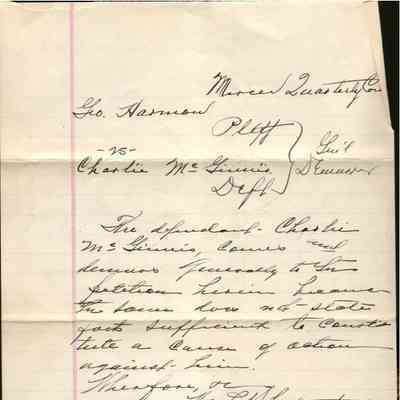 Mercer Quarterly Cou
Geo. Harmon
Pltff
-vs-
Gen'l
Charlie McGinnis
Demurrer
Deft
The defendant Charlie
McGinnis, comes and
demurs generally to the
petition herein because
the same dow not state
facts sufficient to consti
tute a cause of action
against him.
Wherefore, &c